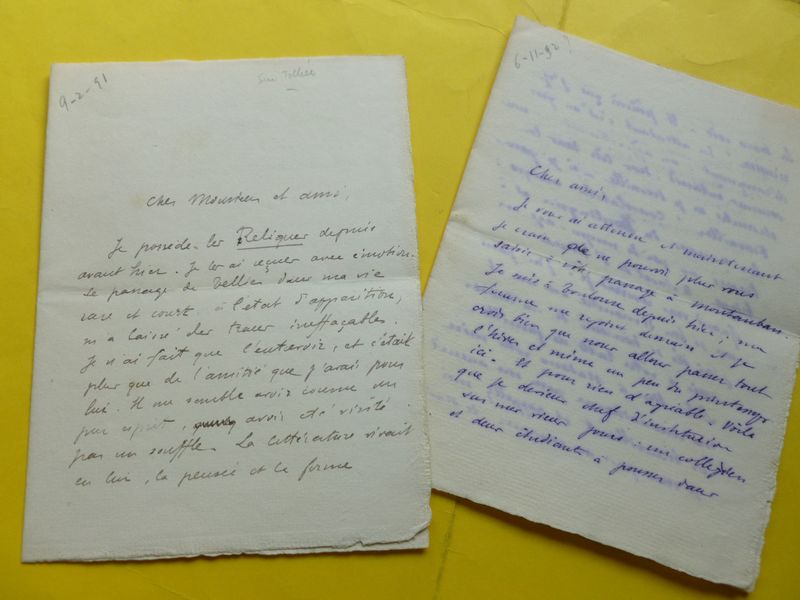 9-2-91
Sur Tellier
Cher Monsieur et ami,
Je possède les Reliques depuis
avant hier. Je les ai reçues avec émotion.
Le passage de Tellier dans ma vie
rare et court à l'état d'apparition,
m'a laissé des traces ineffaçables.
Je n'ai fait que l'entrevoir, et c'était
plus que de l'amitié que j'avais pour
lui. Il me semble avoir connu un
pur esprit, avoir été visité
par un souffle. La littérature vivait
en lui, la pensée et la forme
6-11-92
Cher ami,
Je vous ai attendu et maintenant
je crains de ne pouvoir plus vous
saisir à votre passage à Montauban.
Je suis à Toulouse depuis hier ; ma
femme me rejoint demain et je
crois bien que nous allons passer tout
l'hiver et même un peu du printemps
ici. Et pour rien d'agréable. Voilà
que je deviens chef d'institution
sur mes vieux jours : un collégien
et deux étudiants à pousser dans